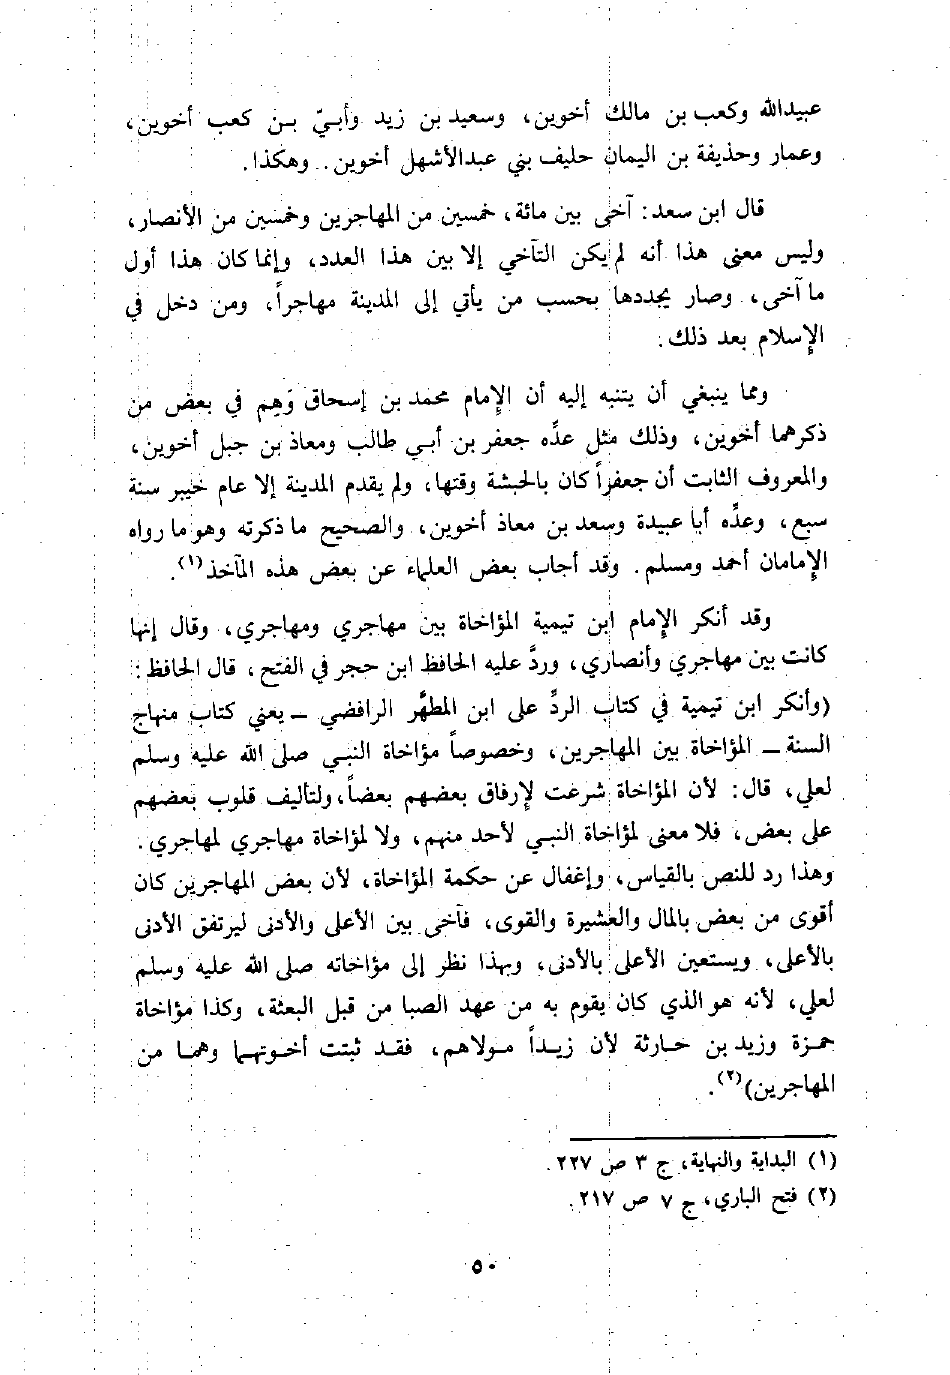 عبيدالله وكعب بن مالك أخوين، وسعيد بن زيد وأبيّ بن كعب أخوين،
وعمار وحذيفة بن اليمان حليف بني عبدالأشهل أخوين.. وهكذا.
قال ابن سعد: آخى بين مائة، خمسين من المهاجرين وخمسين من الأنصار،
وليس معنى هذا أنه لم يكن التآخي إلا بين هذا العدد، وإنما كان هذا أول
ما آخى، وصار يجددها بحسب من يأتي إلى المدينة مهاجراً، ومن دخل في
الإسلام بعد ذلك.
ومما ينبغي أن يتنبه إليه أن الإمام محمد بن إسحاق وَهِم في بعض من
ذكرهما أخوين، وذلك مثل عدِّه جعفر بن أبي طالب ومعاذ بن جبل أخوين،
والمعروف الثابت أن جعفراً كان بالحبشة وقتها، ولم يقدم المدينة إلا عام خيبر سنة
سبع، وعدِّه أبا عبيدة وسعد بن معاذ أخوين، والصحيح ما ذكرته وهو ما رواه
الإمامان أحمد ومسلم. وقد أجاب بعض العلماء عن بعض هذه المآخذ(١).
وقد أنكر الإمام ابن تيمية المؤاخاة بين مهاجري ومهاجري، وقال إنها
كانت بين مهاجري وأنصاري، وردَّ عليه الحافظ ابن حجر في الفتح، قال الحافظ:
(وأنكر ابن تيمية في كتاب الردِّ على ابن المطهَّر الرافضي – يعني كتاب منهاج
السنة – المؤاخاة بين المهاجرين، وخصوصاً مؤاخاة النبي صلى الله عليه وسلم
لعلي، قال: لأن المؤاخاة شرعت لإرفاق بعضهم بعضاً، ولتأليف قلوب بعضهم
على بعض، فلا معنى لمؤاخاة النبي لأحد منهم، ولا لمؤاخاة مهاجري لمهاجري.
وهذا رد للنص بالقياس، وإغفال عن حكمة المؤاخاة، لأن بعض المهاجرين كان
أقوى من بعض بالمال والعشيرة والقوى، فآخى بين الأعلى والأدنى ليرتفق الأدنى
بالأعلى، ويستعين الأعلى بالأدنى، وبهذا نظر إلى مؤاخاته صلى الله عليه وسلم
لعلي، لأنه هو الذي كان يقوم به من عهد الصبا من قبل البعثة، وكذا مؤاخاة
حمزة وزيد بن حارثة لأن زيداً مولاهم، فقد ثبتت أخوتهما وهما من
المهاجرين)(٢).
(١) البداية والنهاية، ج ٣ ص ٢٢٧.
(٢) فتح الباري، ج ٧ ص ٢١٧.
٥٠